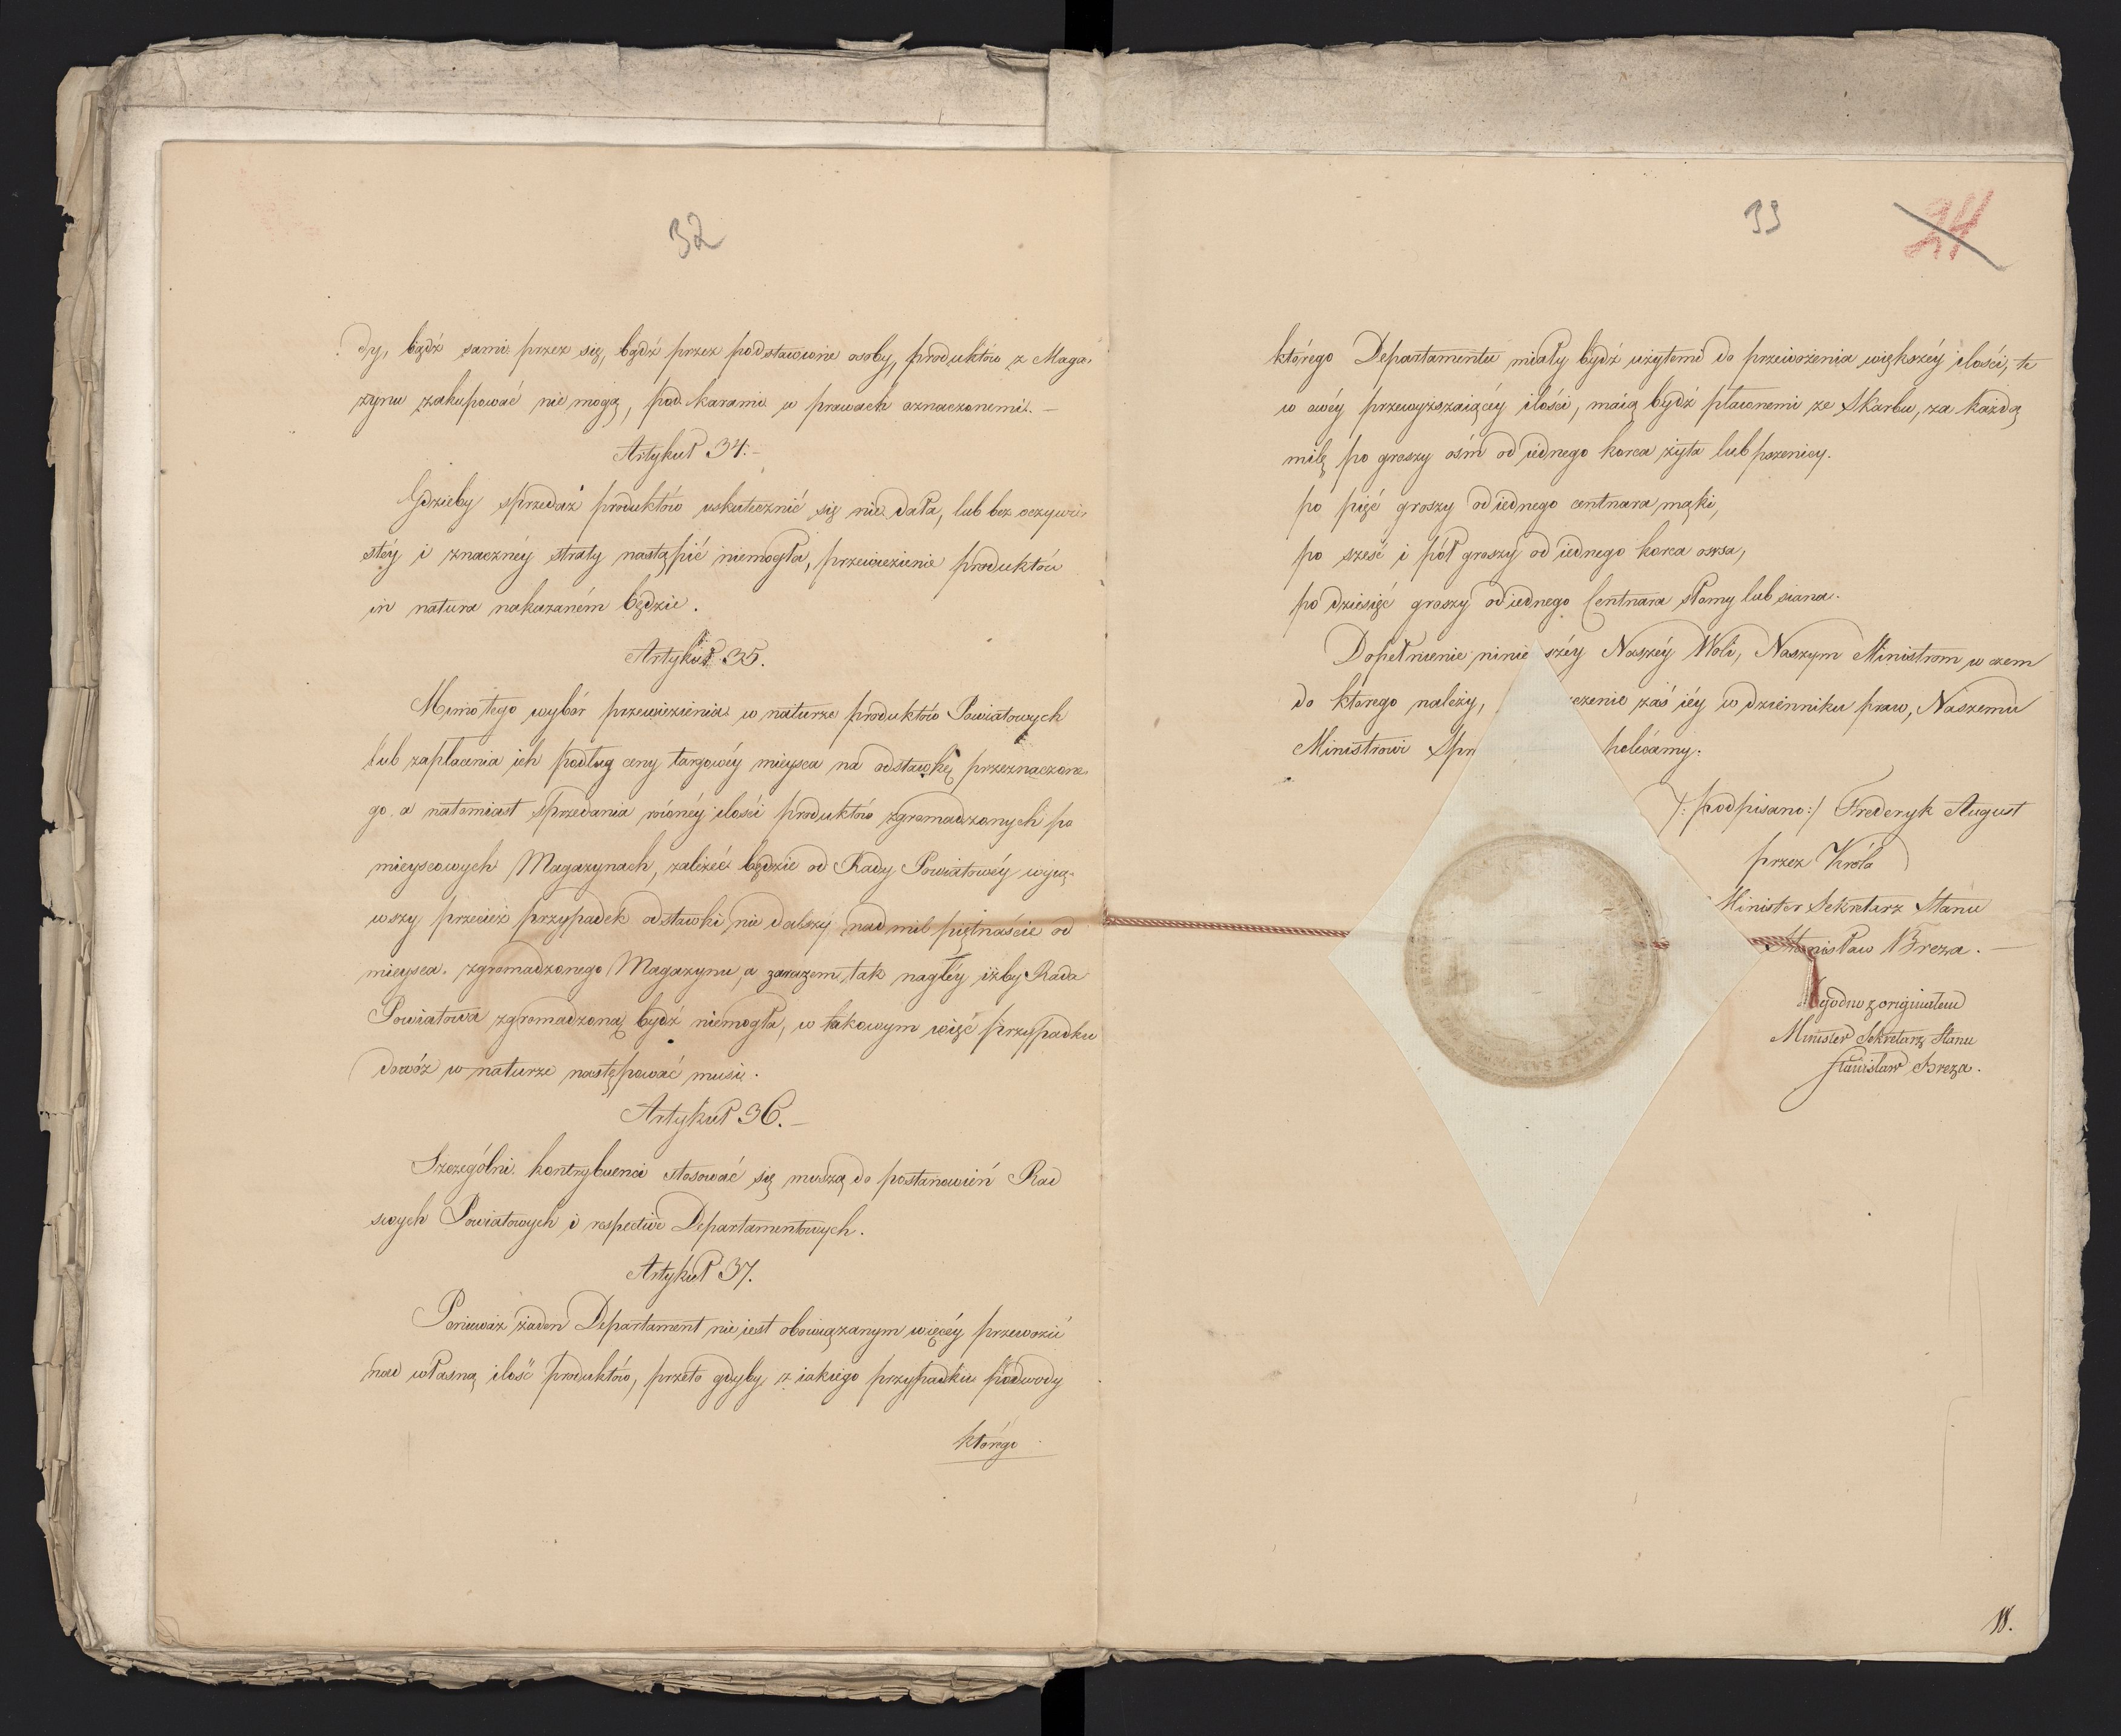 32
dy, bądź sami przez się, bądź przez podstawione osoby, produktów z Maga-
zynu zakupować nie mogą, pod karami w prawach oznaczonemi. –
Artykuł 34. –
Gdzieby sprzedaż produktów uskutecznić się nie dała, lub bez oczywi-
stéy i znacznéy straty nastąpić niemogła, przewiezienie produktów
in natura nakazaném będzie.
Artykuł 35.
Mimo tego wybór przewiezienia w naturze produktów Powiatowych
lub zapłacenia ich podług ceny targowéy mieysca na odstawkę przeznaczone-
go, a natomiast sprzedania równéy ilości produktów zgromadzonych po
mieyscowych Magazynach, zależeć będzie od Rady Powiatowéy wyią-
wszy przecież przypadek odstawki nie dalszy nad mil piętnaście od
mieysca zgromadzonego Magazynu, a zarazem tak nagłéy iżby Rada
Powiatowa zgromadzoną bydź niemogła, w takowym więc przypadku
dowóz w naturze następować musi.
Artykuł 36. –
Szczególni kontrybuenci stosować się muszą do postanowień Rad
swych Powiatowych i respective Departamentowych.
Artykuł 37.
Ponieważ żaden Departament nie iest obowiązanym więcéy przewozić
nad własną ilość produktów, przeto gdyby z iakiego przypadku podwody
którego
33
24
którego Departamentu miały bydź użytemi do przewożenia większéy ilości, te
w owéy przewyższaiącéy ilości, maią bydź płaconemi ze Skarbu, za każdą
milę po groszy ośm od iednego korca żyta lub pszenicy.
po pięć groszy od iednego centnara mąki,
po sześć i pół groszy od iednego korca owsa,
po dziesięć groszy od iednego Centnara słomy lub siana.
Dopełnienie ninie széy Naszéy Woli, Naszym Ministrom w czem
do którego należy, czenie zaś iéy w dzienniku praw, Naszemu
Ministrowi Spr polecamy.
/:podpisano:/ Frederyk August
przez Króla
Minister Sekretarz Stanu
Stanisław Breza. –
Zgodno z originałem
Minister Sekretarz Stanu
Stanisław Breza.
18.